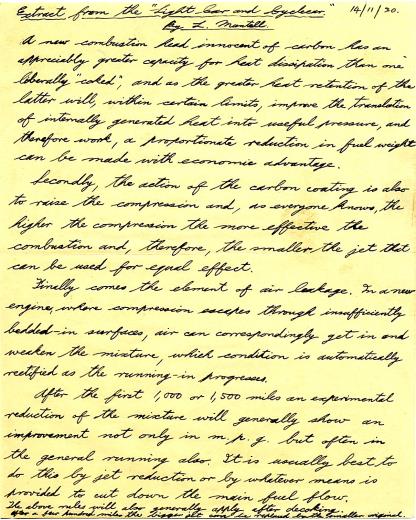 Extract from the "Light Car and Cyclecar" 14/11/30.
By L. Mantell.
A new combustion head innocent of carbon has an
appreciably greater capacity for heat dissipation than one
liberally "coked", and as the greater heat retention of the
latter will, within certain limits, improve the translation
of internally generated heat into useful pressure, and
therefore work, a proportionate reduction in fuel weight
can be made with economic advantage.
Secondly, the action of the carbon coating is also
to raise the compression and, as everyone knows, the
higher the compression the more effective the
combustion and, therefore, the smaller the jet that
can be used for equal effect.
Finally comes the element of air leakage. In a new
engine, where compression escapes through insufficiently
bedded-in surfaces, air can correspondingly get in and
weaken the mixture, which condition is automatically
rectified as the running-in progresses.
After the first 1,000 or 1,500 miles an experimental
reduction of the mixture will generally show an
improvement not only in m.p.g. but often in
the general running also. It is usually best to
do this by jet reduction or by whatever means is
provided to cut down the main fuel flow.
The above rules will also generally apply after decoking.
After a few hundred miles the bigger jet can be replaced by the smaller original.